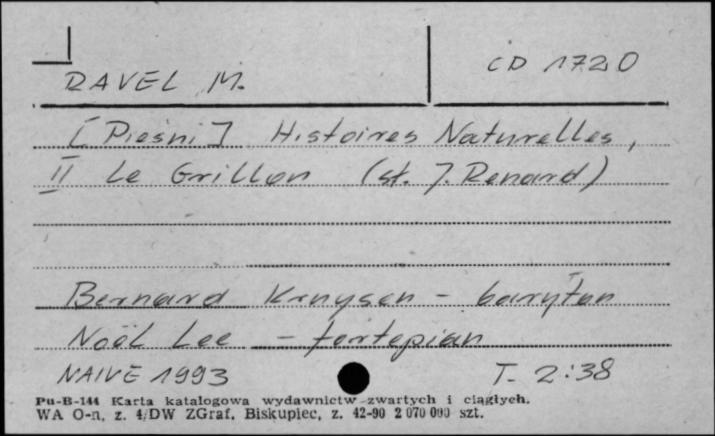 RAVEL M.
CD 1720
[Pieśni] Histoires Naturelles,
II Le Grillon (sł. J. Renard)
Bernard Kruysen - baryton
Noël Lee - fortepian
NAIVE 1993 T. 2:38
Pu-B-144 Karta katalogowa wydawnictw zwartych i ciągłych.
WA O-n, z. 4/DW ZGraf. Biskupiec, z. 42-90 2 070 000 szt.